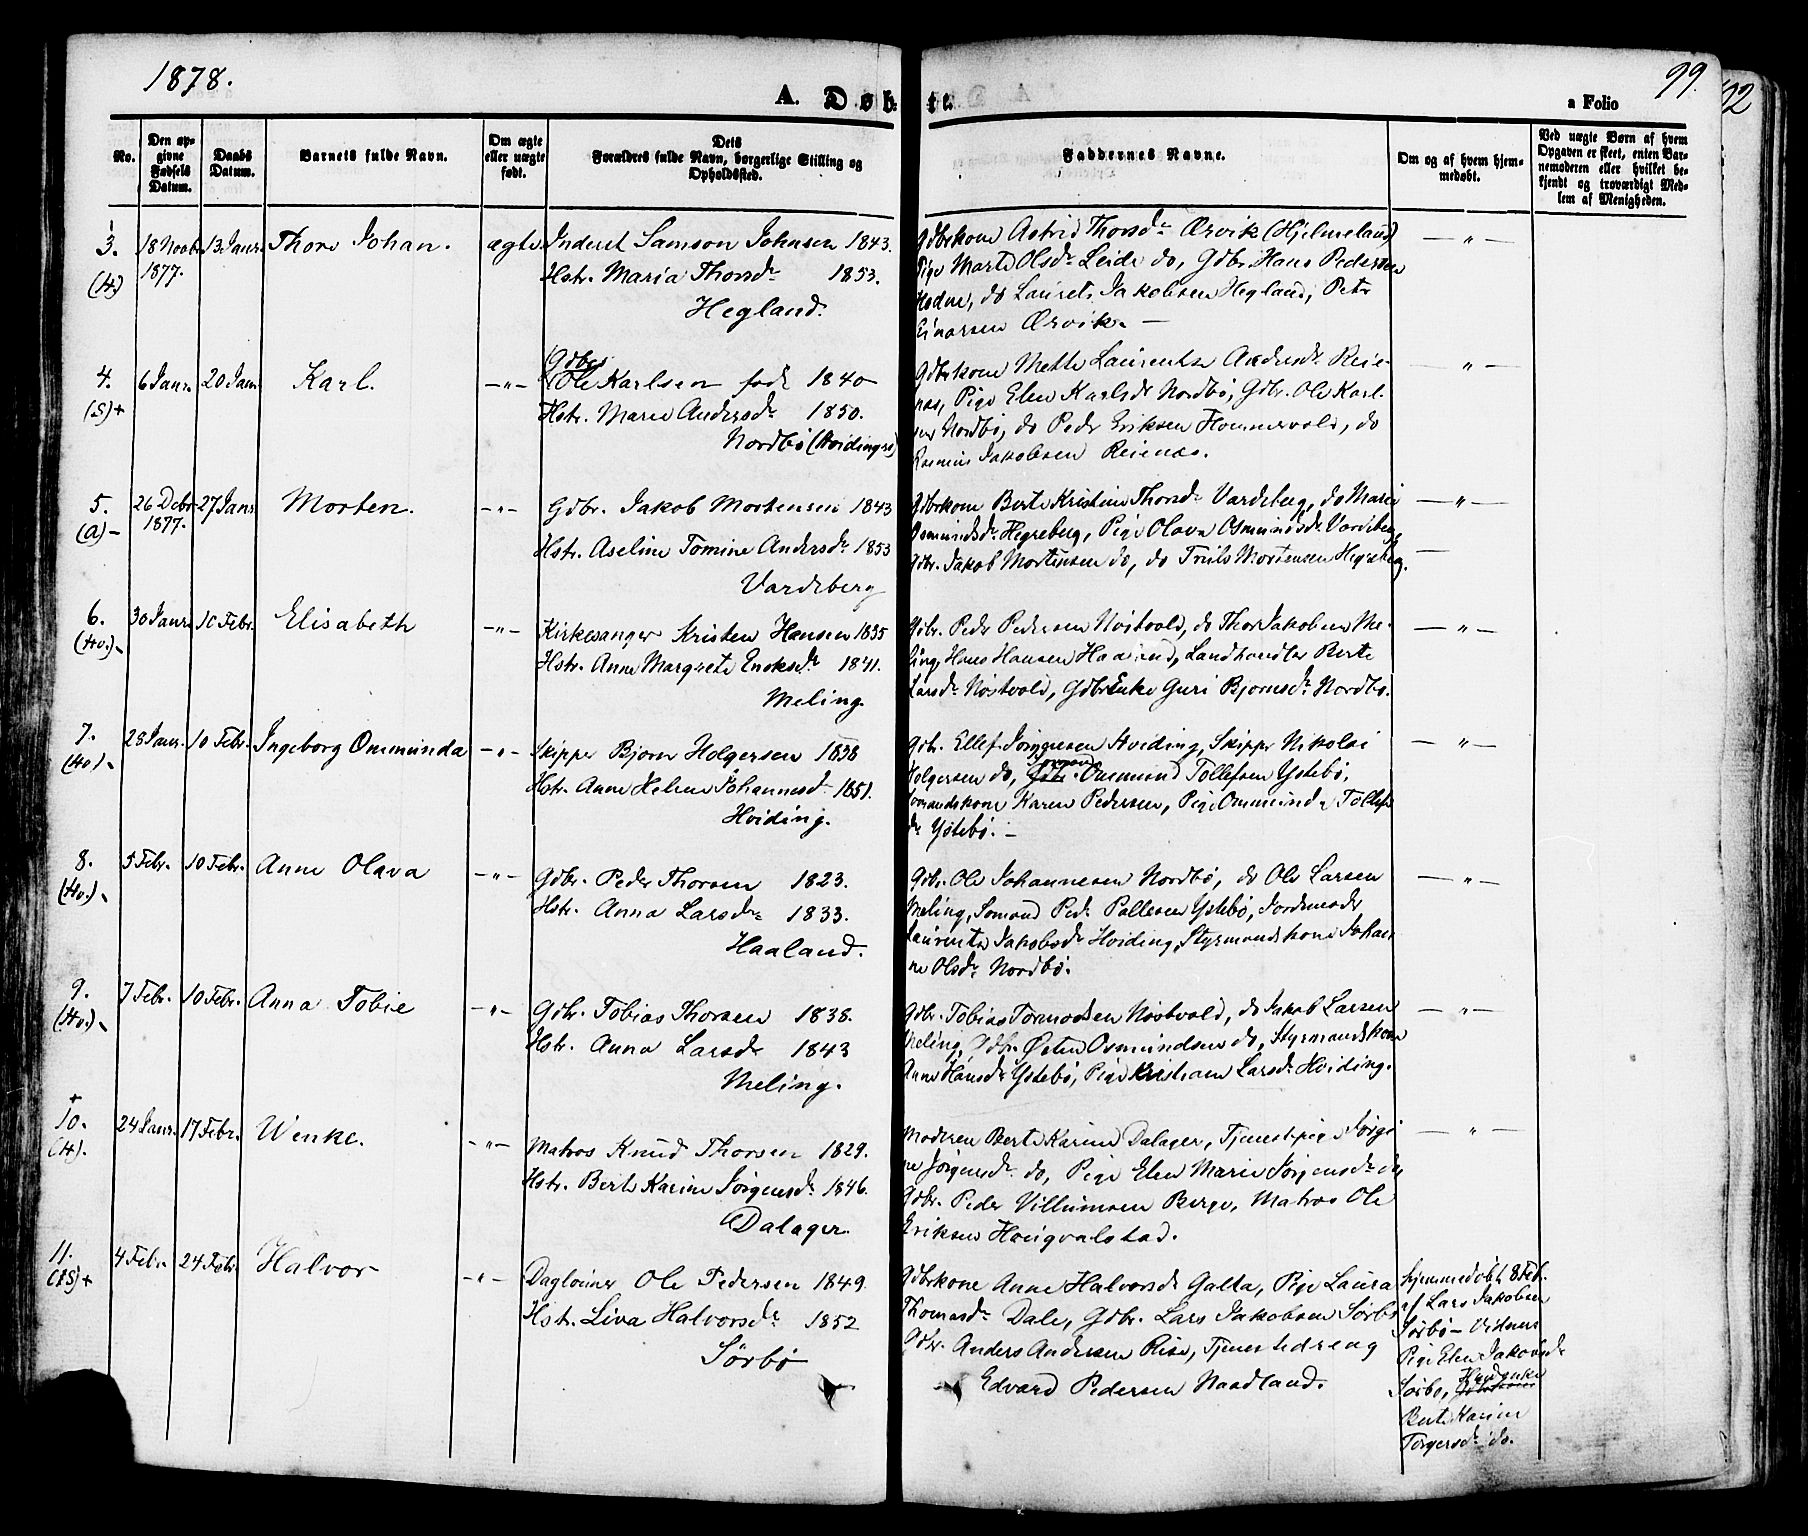 1878.
A. Døbte.
a Folio
99.
No.
Den opgivne Fødsels Datum.
Daabs Datum.
Barnets fulde Navn.
Om ægte eller uægte født.
Dets Forældres fulde Navn, borgerlige Stilling og Opholdssted.
Faddernes Navne.
Om og af hvem hjemmedøbt.
Ved uægte Børn af hvem Opgaven er skeet, enten Barnemoderen eller hvilket bekjendt og troværdigt Medlem af Menigheden.
3.
(H)
18 Novbr. 1877.
13 Janr.
Thore Johan.
ægte
Inderst Samson Johnsen 1843.
Hstr. Maria Thorsdr 1853.
Hegland.
Gdbrkone Astrid Thorsdr Ærvik (Hjelmeland)
Pige Marte Olsdr Leide do, Gdbr. Hans Pedersen
Hodne, do Laurets Jakobsen Hegland, Peter
Einarsen Ærvik. —
— " —
4.
(S)+
6 Janr.
20 Janr.
Karl.
— " —
Gdbr.
Ole Karlsen født 1840
Hstr. Maren Andersdr 1850.
Nordbø (Hvidingsø)
Gdbrkone Mette Laurentse Andersdr Reie-
næs, Pige Elen Karlsdr Nordbø, Gdbr. Ole Karl-
sen Nordbø, do Peder Eriksen Hommersvold, do
Rasmus Jakobsen Reienæs.
— " —
5.
(A) -
26 Debr. 1877.
27 Janr.
Morten.
— " —
Gdbr. Jakob Mortensen 1843
Hstr. Aseline Tomine Andersdr 1853
Vardeberg
Gdbrkone Berte Kristine Thorsdr Vardeberg, do Mari
Osmundsdr Hegreberg, Pige Olava Osmundsdr Vardeberg
Gdbr. Jakob Mortensen do, do Truls Mortensen Hegreberg.
— " —
6.
(Hv.)
30 Janr.
10 Febr.
Elisabeth
— " —
Kirkesanger Kristen Hansen 1835
Hstr. Anne Margrete Enoksdr 1841.
Meling.
Gdbr. Peder Pedersen Nøstvold, do Thor Jakobsen Me-
ling, Hans Hansen Haaland, Landhandler Berte
Larsdr Nøstvold, Gdbr Enke Guri Bjørnsdr Nordbø.
— " —
7.
(Hv.)
28 Janr.
10 Febr.
Ingeborg Ommunda
— " —
Skipper Bjørn Holgersen 1838
Hstr. Anne Helene Johannesdr 1851.
Hviding.
Gdbr. Ellef Jørgensen Hviding, Skipper Nikolai
Holgersen do, Ommund Tollefsen Ystebø,
Somandskone Karen Pedersen, Pige Ommunda Tollefs
dr Ystebø. —
— " —
8.
(Hv.)
5 Febr.
10 Febr.
Anne Olava
— " —
Gdbr. Peder Thorsen 1823.
Hstr. Anna Larsdr 1833.
Haaland.
Gdbr. Ole Johannesen Nordbø, do Ole Larsen
Meling, Somand Peder Pallesen Ystebø, Jordemoder
Laurentze Jakobsdr Hviding, Styrmandskone Johan-
ne Olsdr Nordbø.
— " —
9.
(Hv.)
7 Febr.
10 Febr.
Anna Tobie
— " —
Gdbr. Tobias Thorsen 1838.
Hstr. Anna Larsdr 1843
Meling.
Gdbr. Tobias Tormodsen Nøstvold, do Jakob Larsen
Meling, Gdbr. Østen Osmundsen do, Styrmandskone
Anne Hansdr Ystebø, Pige Kristiane Larsdr Hviding.
— " —
+
10.
(H).
24 Janr.
17 Febr.
Wenke.
— " —
Matros Knud Thorsen 1829.
Hstr. Berte Karine Jørgensdr 1846.
Dalager.
Moderen Berte Karine Dalager, Tjenestepige Jørgi
ne Jørgensdr do, Pige Elen Marie Jørgensdr do
Gdbr. Peder Villumsen Berge, Matros Ole
Eriksen Haugvalstad.
— " —
11.
(S)+
4 Febr.
24 Febr.
Halvor
— " —
Daglønner Ole Pedersen 1849.
Hstr. Liva Halvorsdr 1852
Sørbø
Gdbrkone Anne Halvorsdr Galta, Pige Laura
Thomasdr Dale, Gdbr. Lars Jakobsen Sørbø
Gdbr. Anders Andersen Rise, Tjenestedreng
Edvard Pedersen Naadland.
hjemmedøbt 8 Feb.
af Lars Jakobsen
Sørbø — Vidner
Pige Elen Jakobsdr
Sørbø,
Berte Karine
Torgersdr do.